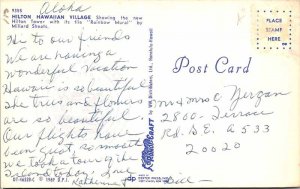 Aloha
HILTON HAWAIIAN VILLAGE Showing the new
Hilton Tower with its 286' "Rainbow Mural" by
Millard Sheets.
Hi to our friends
We are having a
wonderful vacation
Hawaii is so beautiful
The trees and flowers
are so beautiful.
Our flights have
been great, so smooth
we took a tour of the
Island today. Love
Katherine &
Bill
© 1967 D.P.I.
PLACE
STAMP
HERE
Post Card
Mr & Mrs C
2800 - Terrace
Rd. S.E. A 533
20020